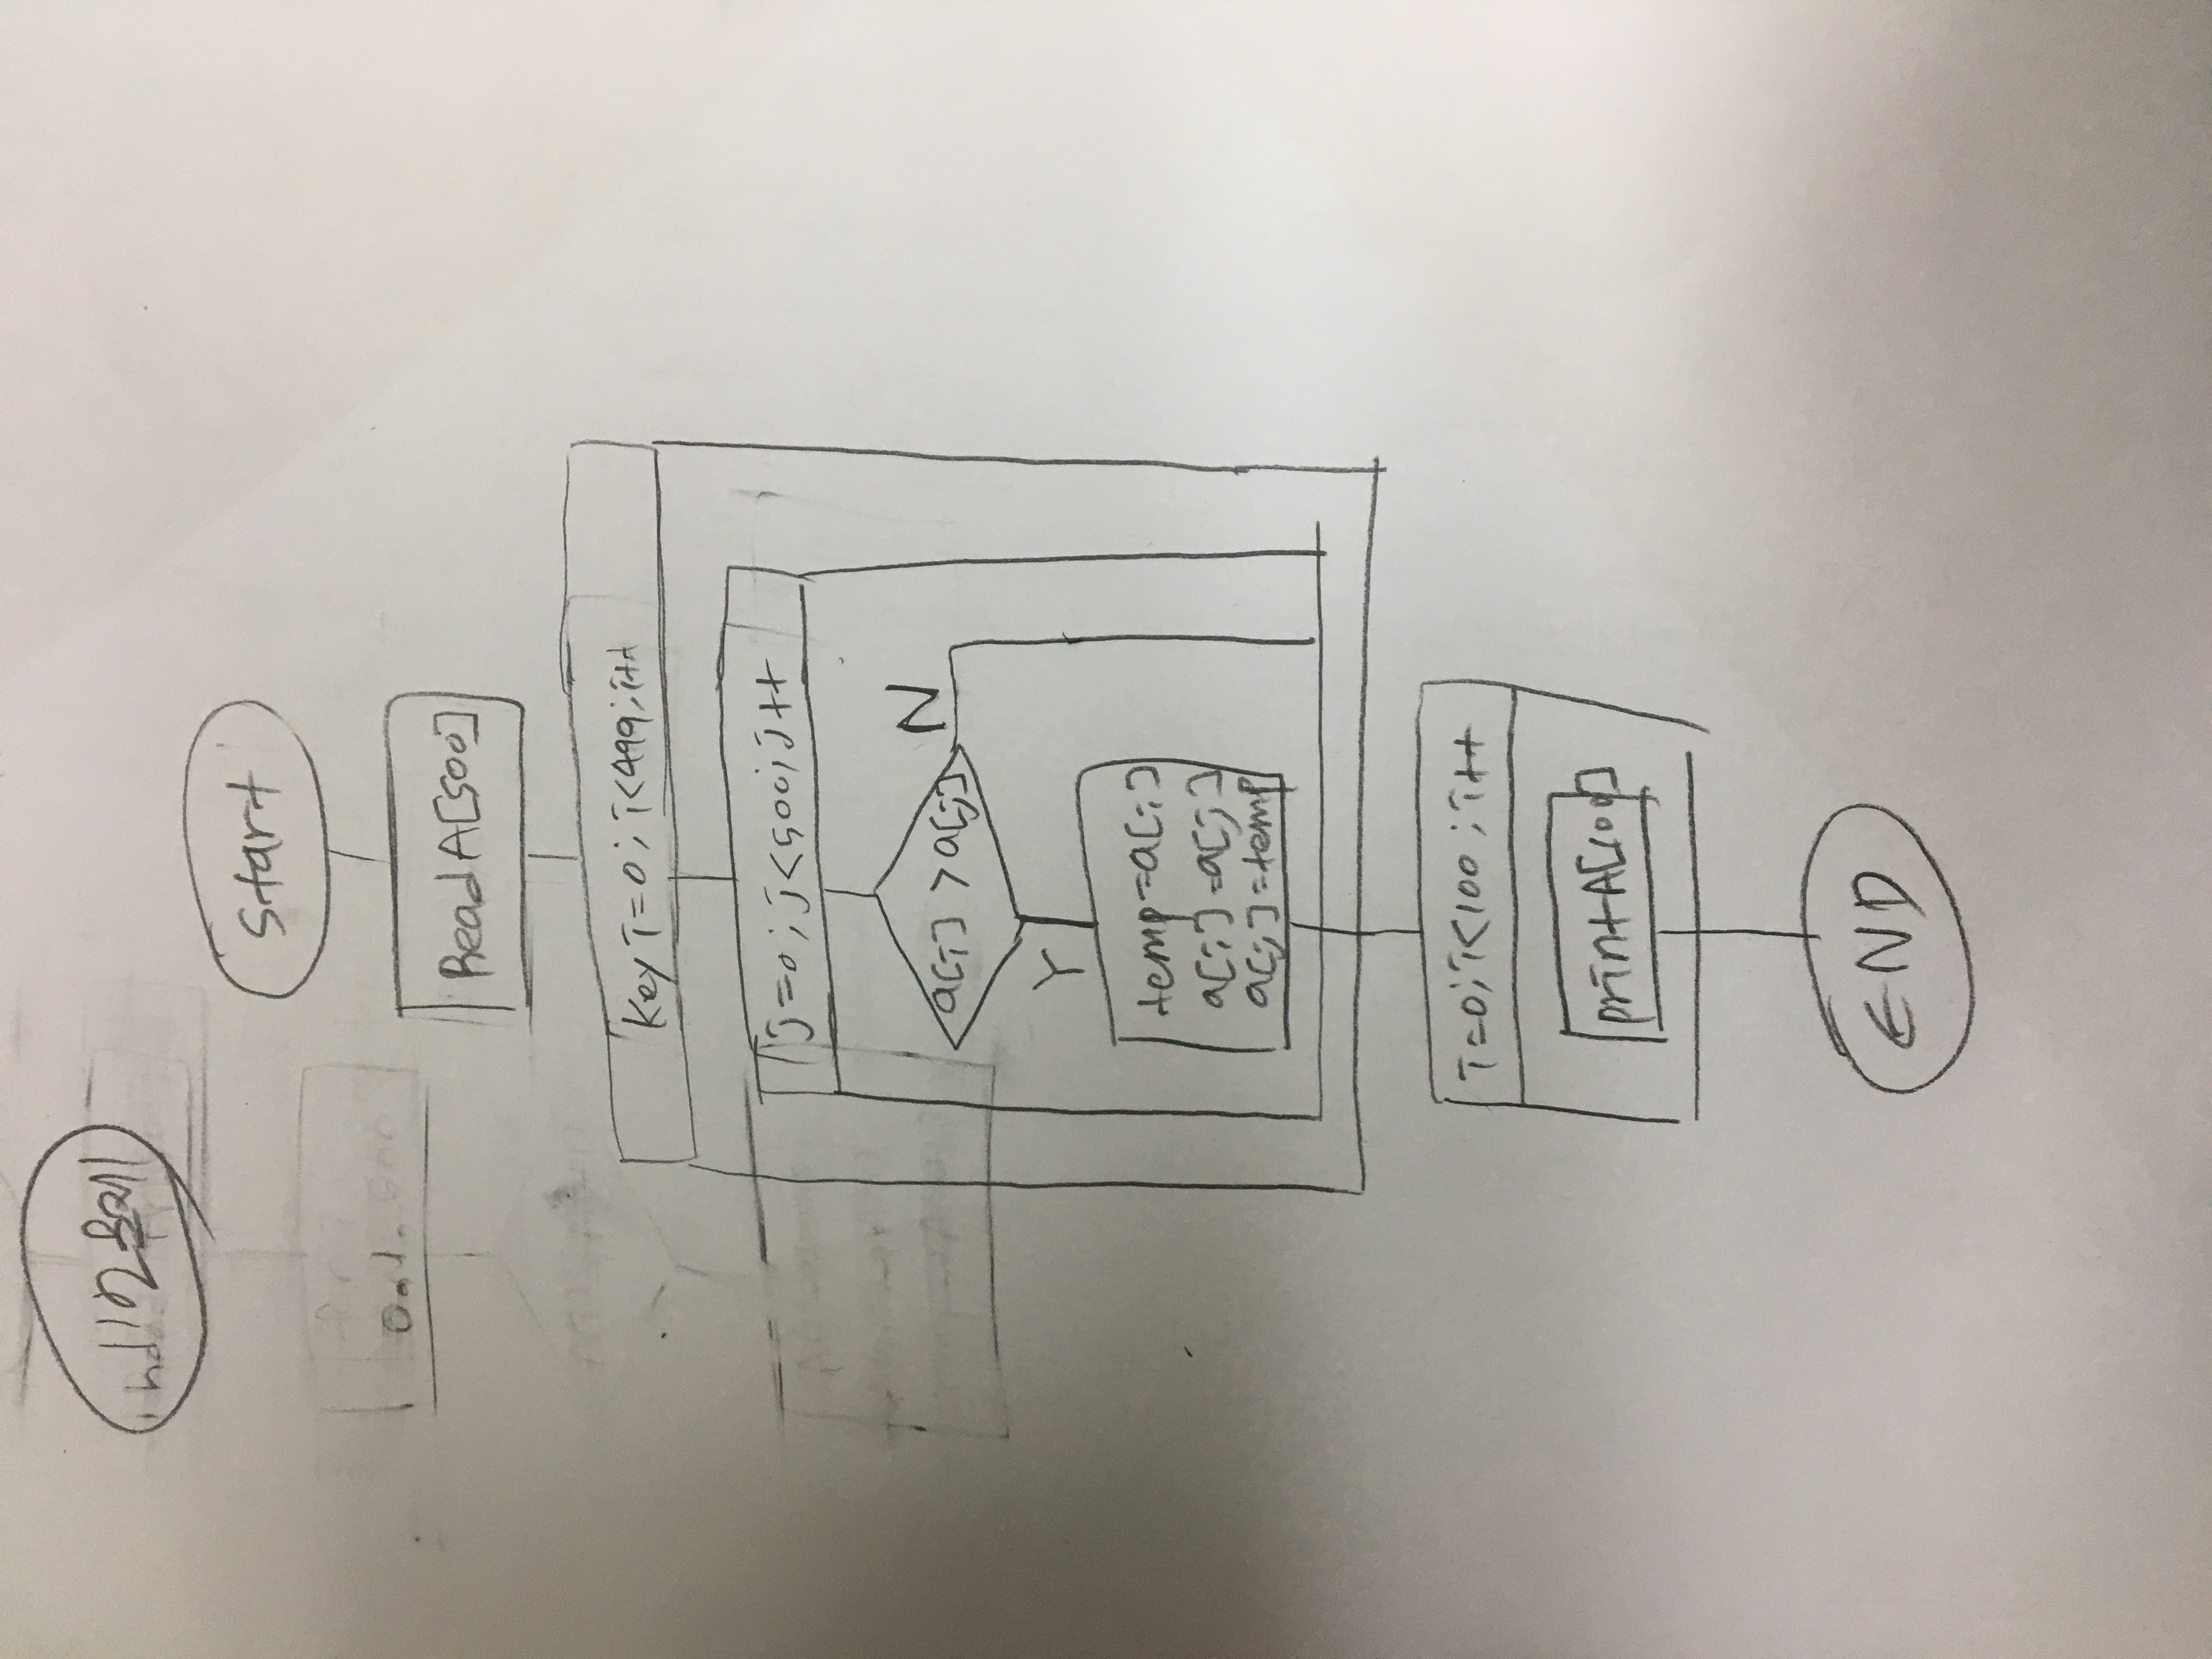 Start
Read A[500]
Key i=0; i<499; i++
j=0; j<500; j++
a[i] > a[j]
N
Y
temp=a[i]
a[i]=a[j]
a[j]=temp
i=0; i<100; i++
print A[100]
END